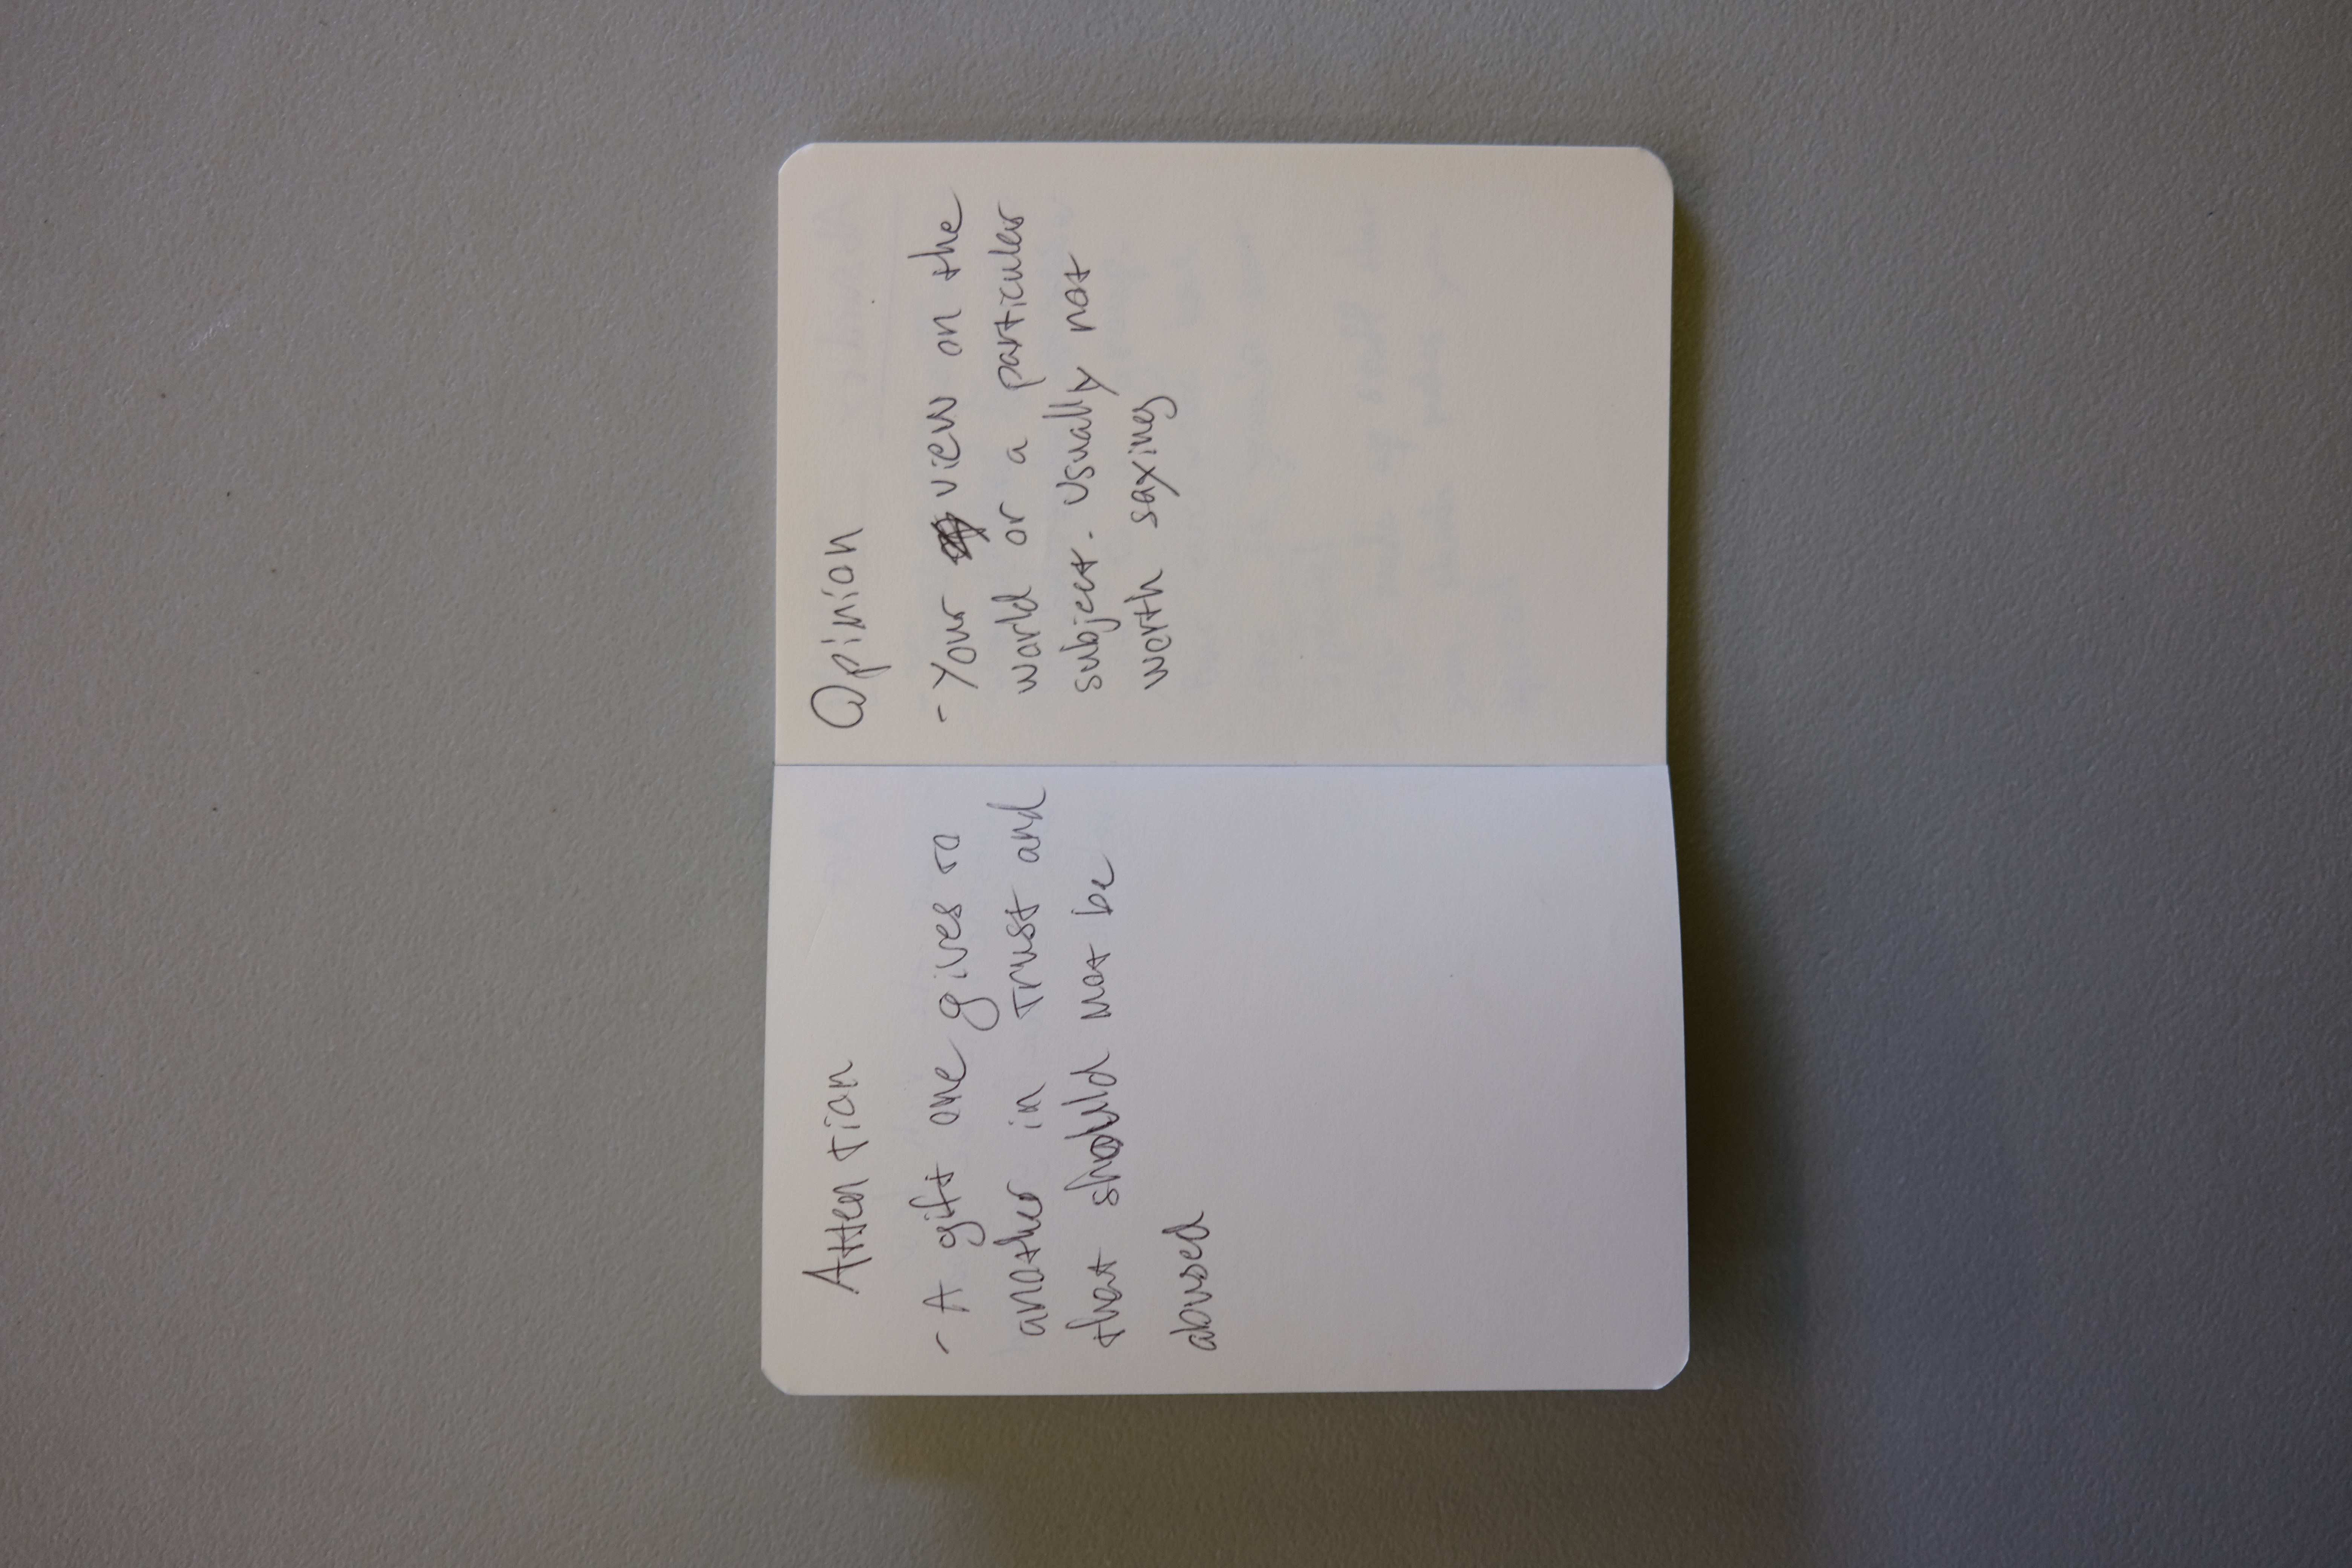 Attention
- A gift one gives to
another in trust and
that should not be
abused
Opinion
- Your view on the
world or a particular
subject. Usually not
worth saying